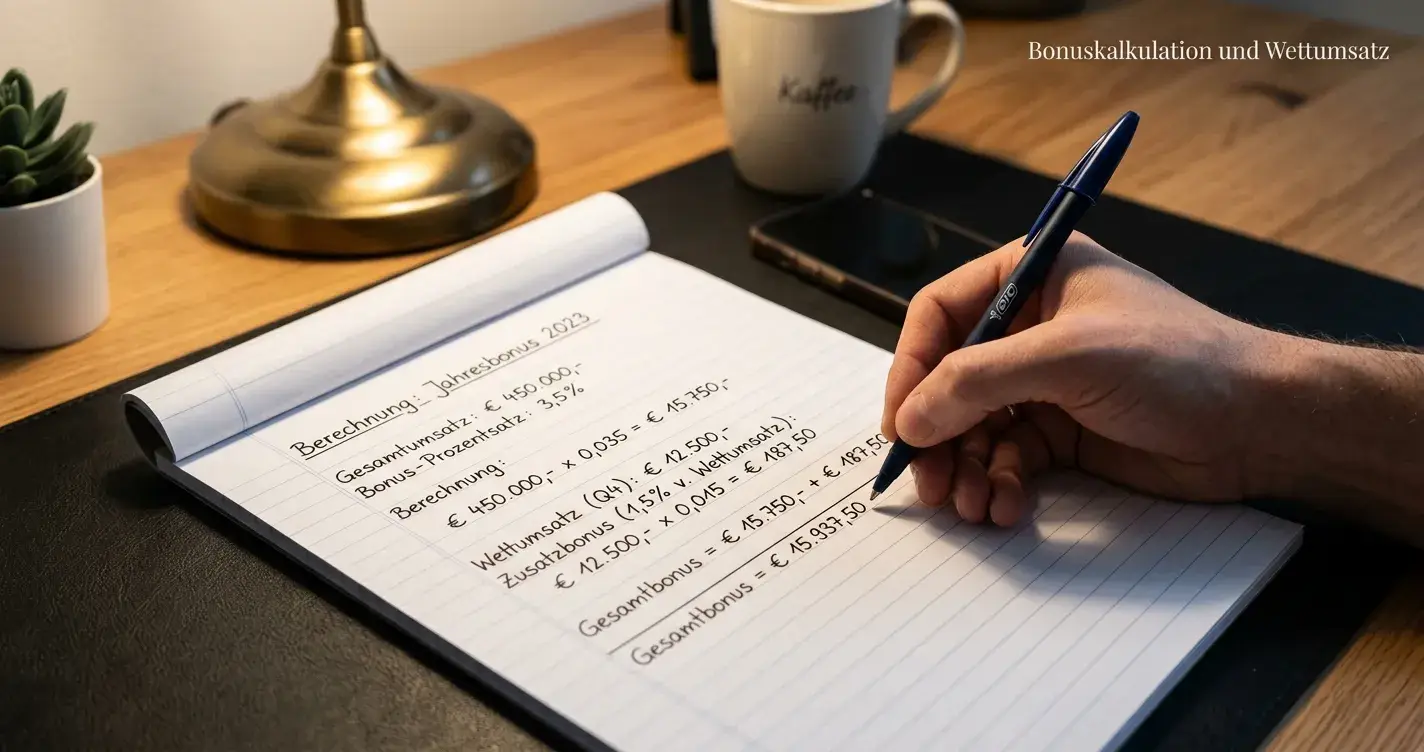 Bonuskalkulation und Wettumsatz
Kaffee
BIC
Berechnung: Jahresbonus 2023
Gesamtumsatz: € 450.000,-
Bonus-Prozentsatz: 3,5%
Berechnung:
€ 450.000,- x 0,035 = € 15.750,-
Wettumsatz (Q4): € 12.500,-
Zusatzbonus (1,5% v. Wettumsatz):
€ 12.500,- x 0,015 = € 187,50
Gesamtbonus = € 15.750,- + € 187,50
Gesamtbonus = € 15.937,50